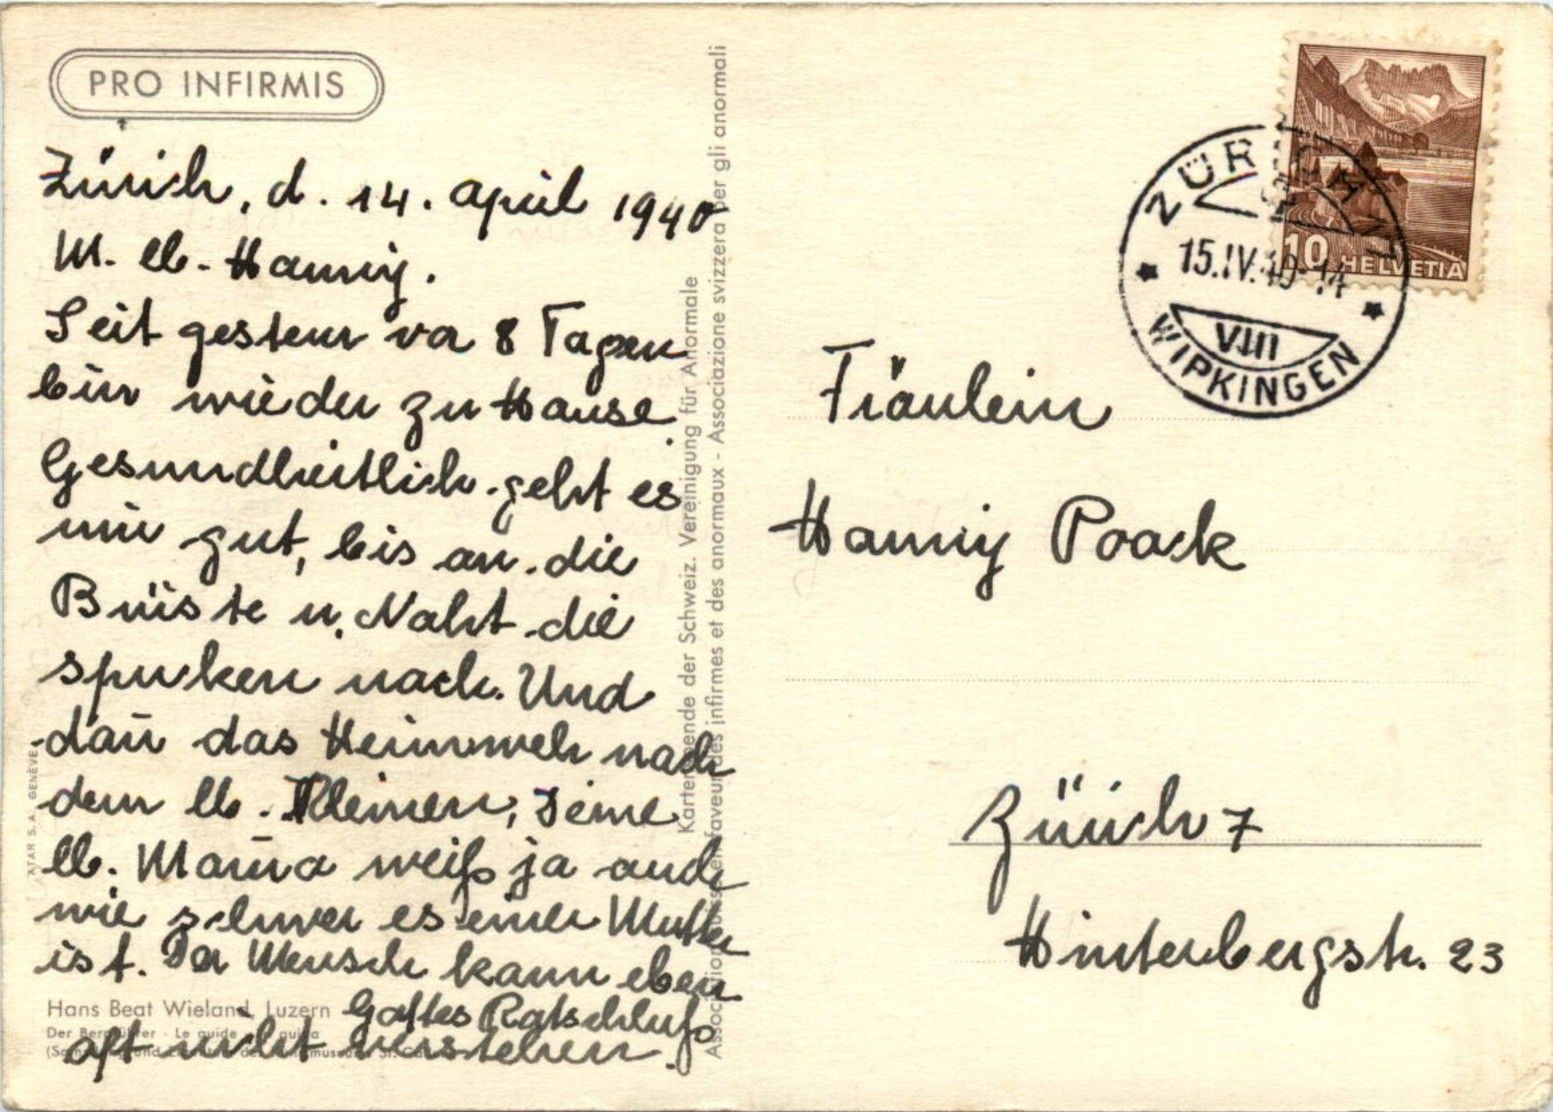 PRO INFIRMIS
Zürich, d. 14. April 1940
M. lb. Hanny.
Seit gestern vor 8 Tagen
bin wieder zu Hause.
Gesundheitlich geht es
mir gut, bis an die
Brüste u. Naht die
spucken nach. Und
dañ das Heimweh nach
dem lb. Kleinen, Deine
lb. Mama weiß ja auch
wie schwer es einer Mutter
ist. Der Mensch kann eben
Gottes Ratschluß
oft nicht verstehen.
Hans Beat Wieland, Luzern
Der Bergführer · Le guide
ATAR S.A. GENÈVE
Kartenspende der Schweiz. Vereinigung für Anormale
Association suisse en faveur des infirmes et des anormaux - Associazione svizzera per gli anormali
10 HELVETIA
ZÜRICH 17
15.IV.40-14
VIII
WIPKINGEN
Fräulein
Hanny Poack
Zürich 7
Hinterbergstr. 23